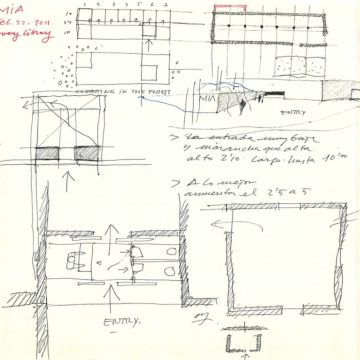 MIA
Feb. 22. 2011
Library
1 2 3 4 5 6 7
FLOATING IN THE FOREST
MIA
ENTRY
> La entrada muy baja
y más ancha que alta
alto 2'10 largo hasta 10'm
> A lo mejor
aumentar el 2'5 a 5
ENTRY.